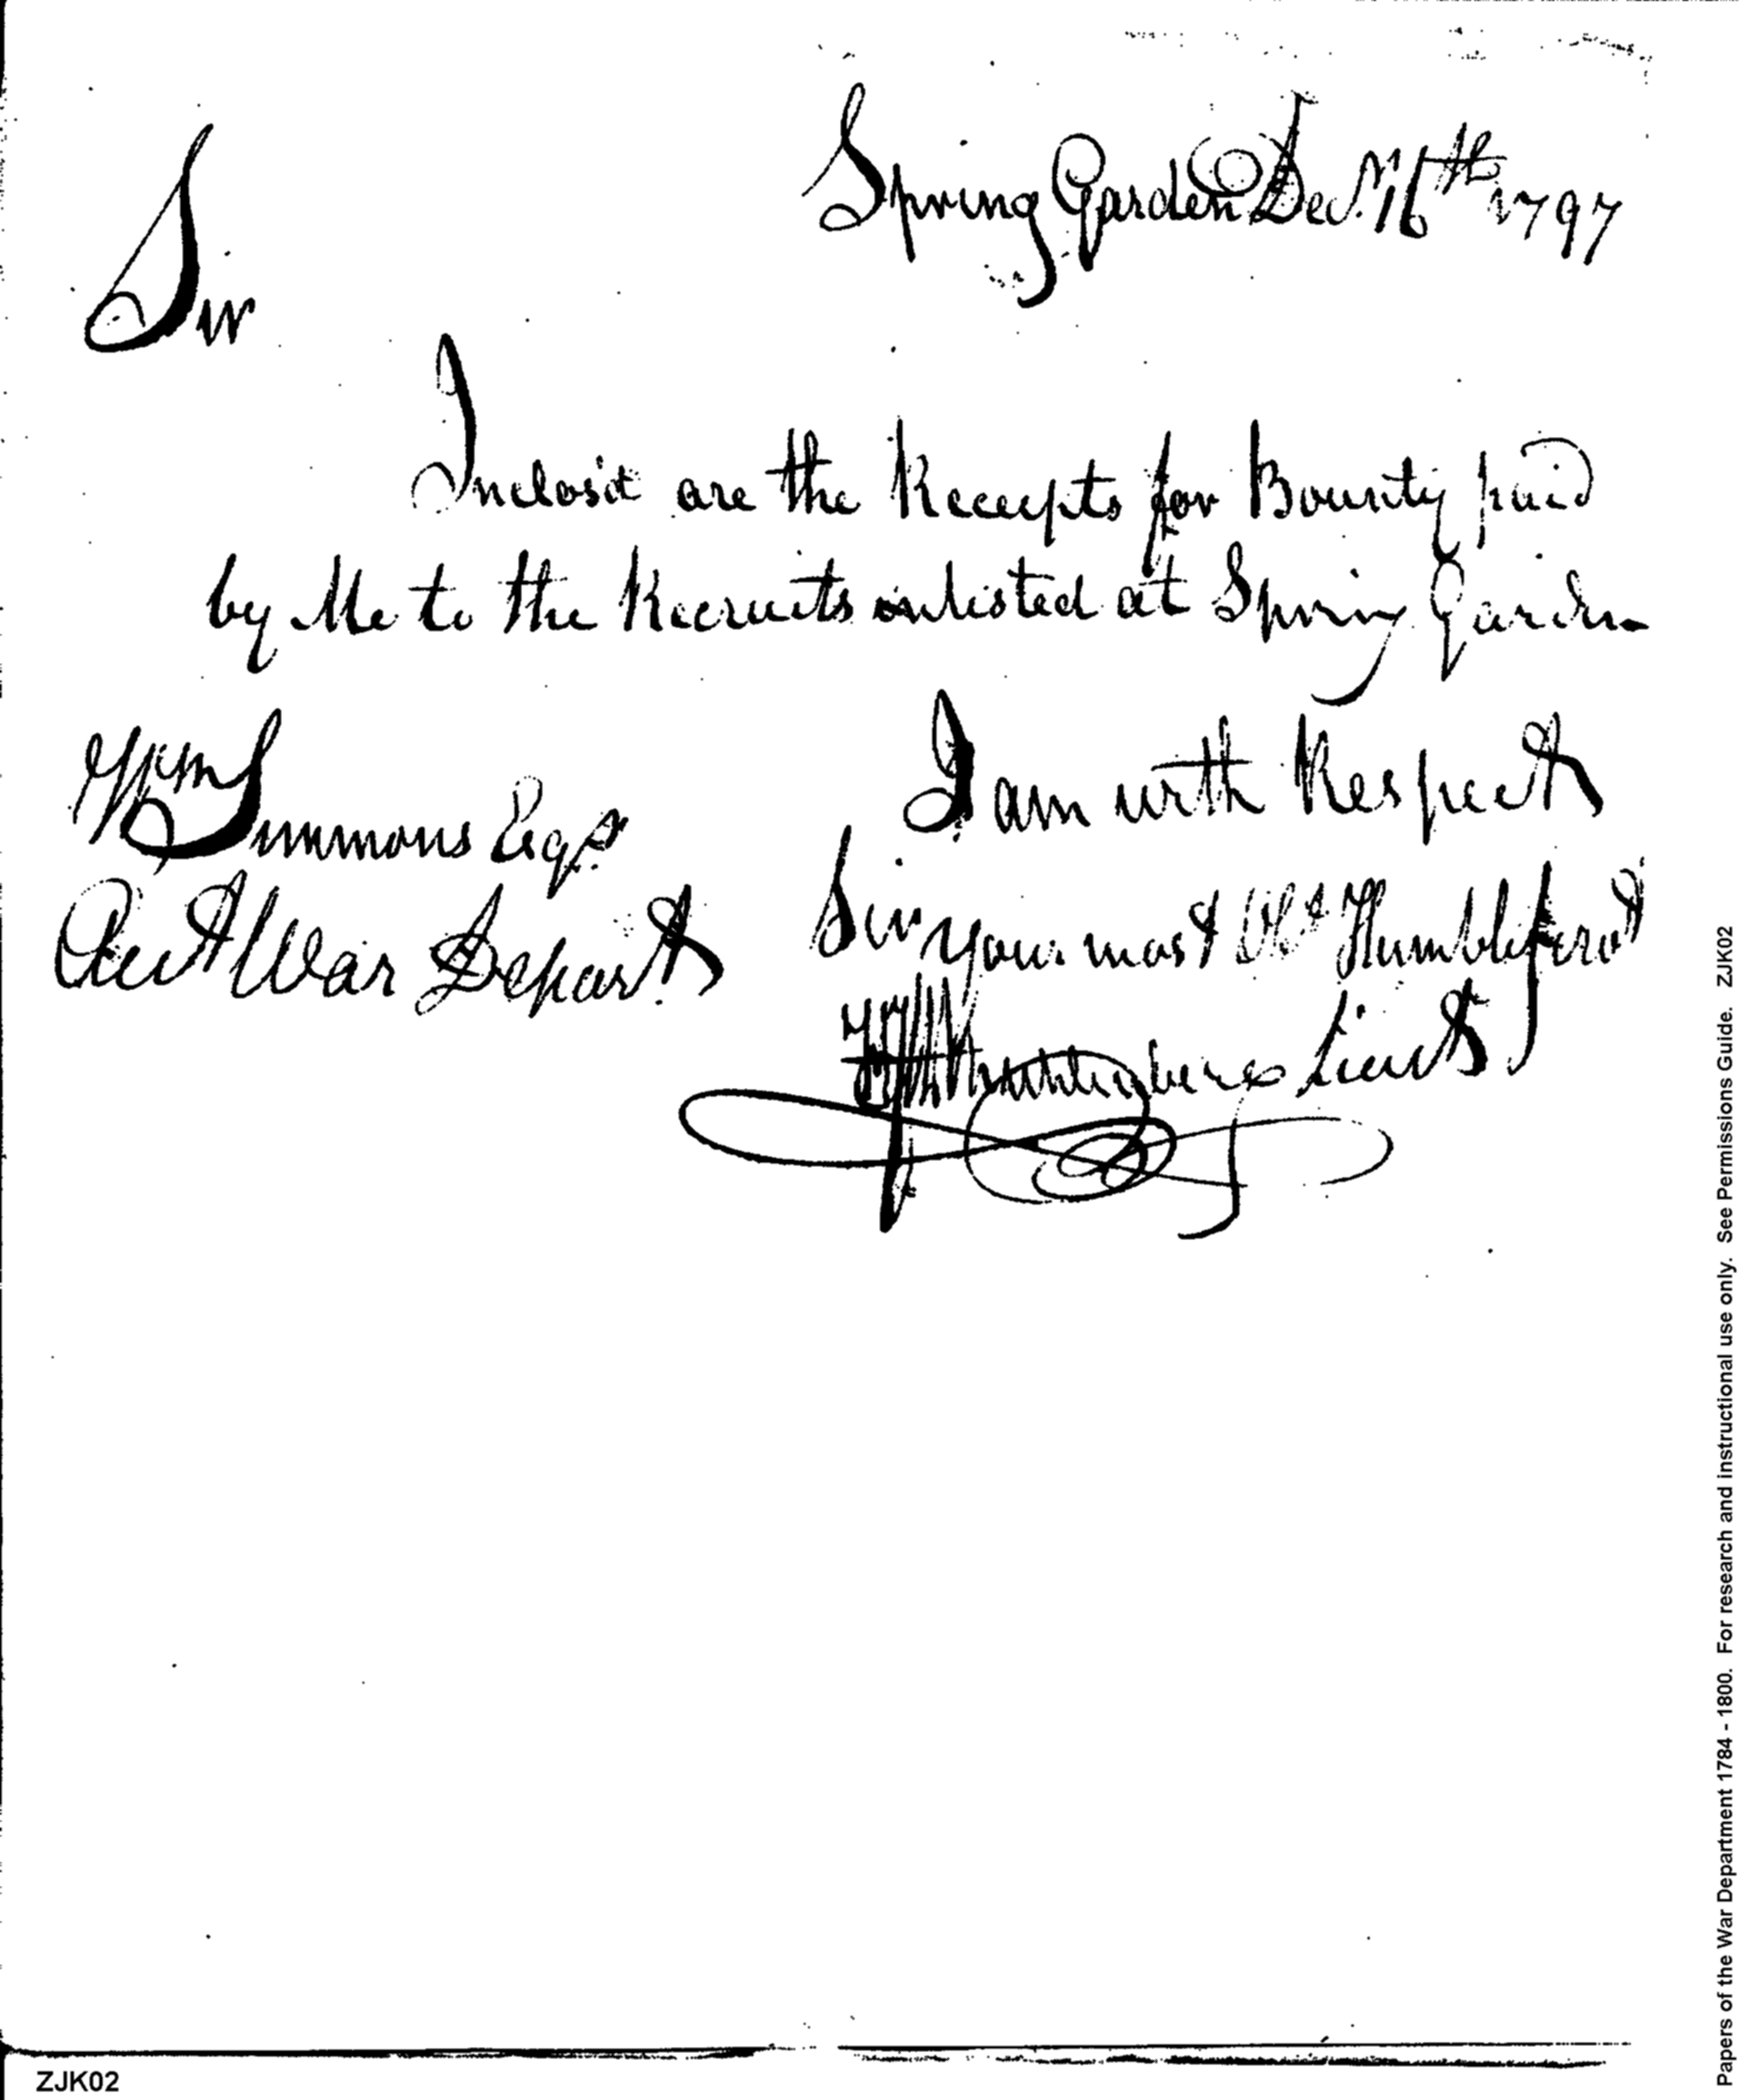 Spring Garden Decr. 16th 1797
Sir
Inclosd are the Receipts for Bounty paid
by Me to the Recruits inlisted at Spring Garden
I am with Respect
Wm Simmons Esqr.
Sir your most Obt Humble Servt
Acct War Depart.
Muhlenberg Lieut
ZJK02
Papers of the War Department 1784 - 1800. For research and instructional use only. See Permissions Guide. ZJK02